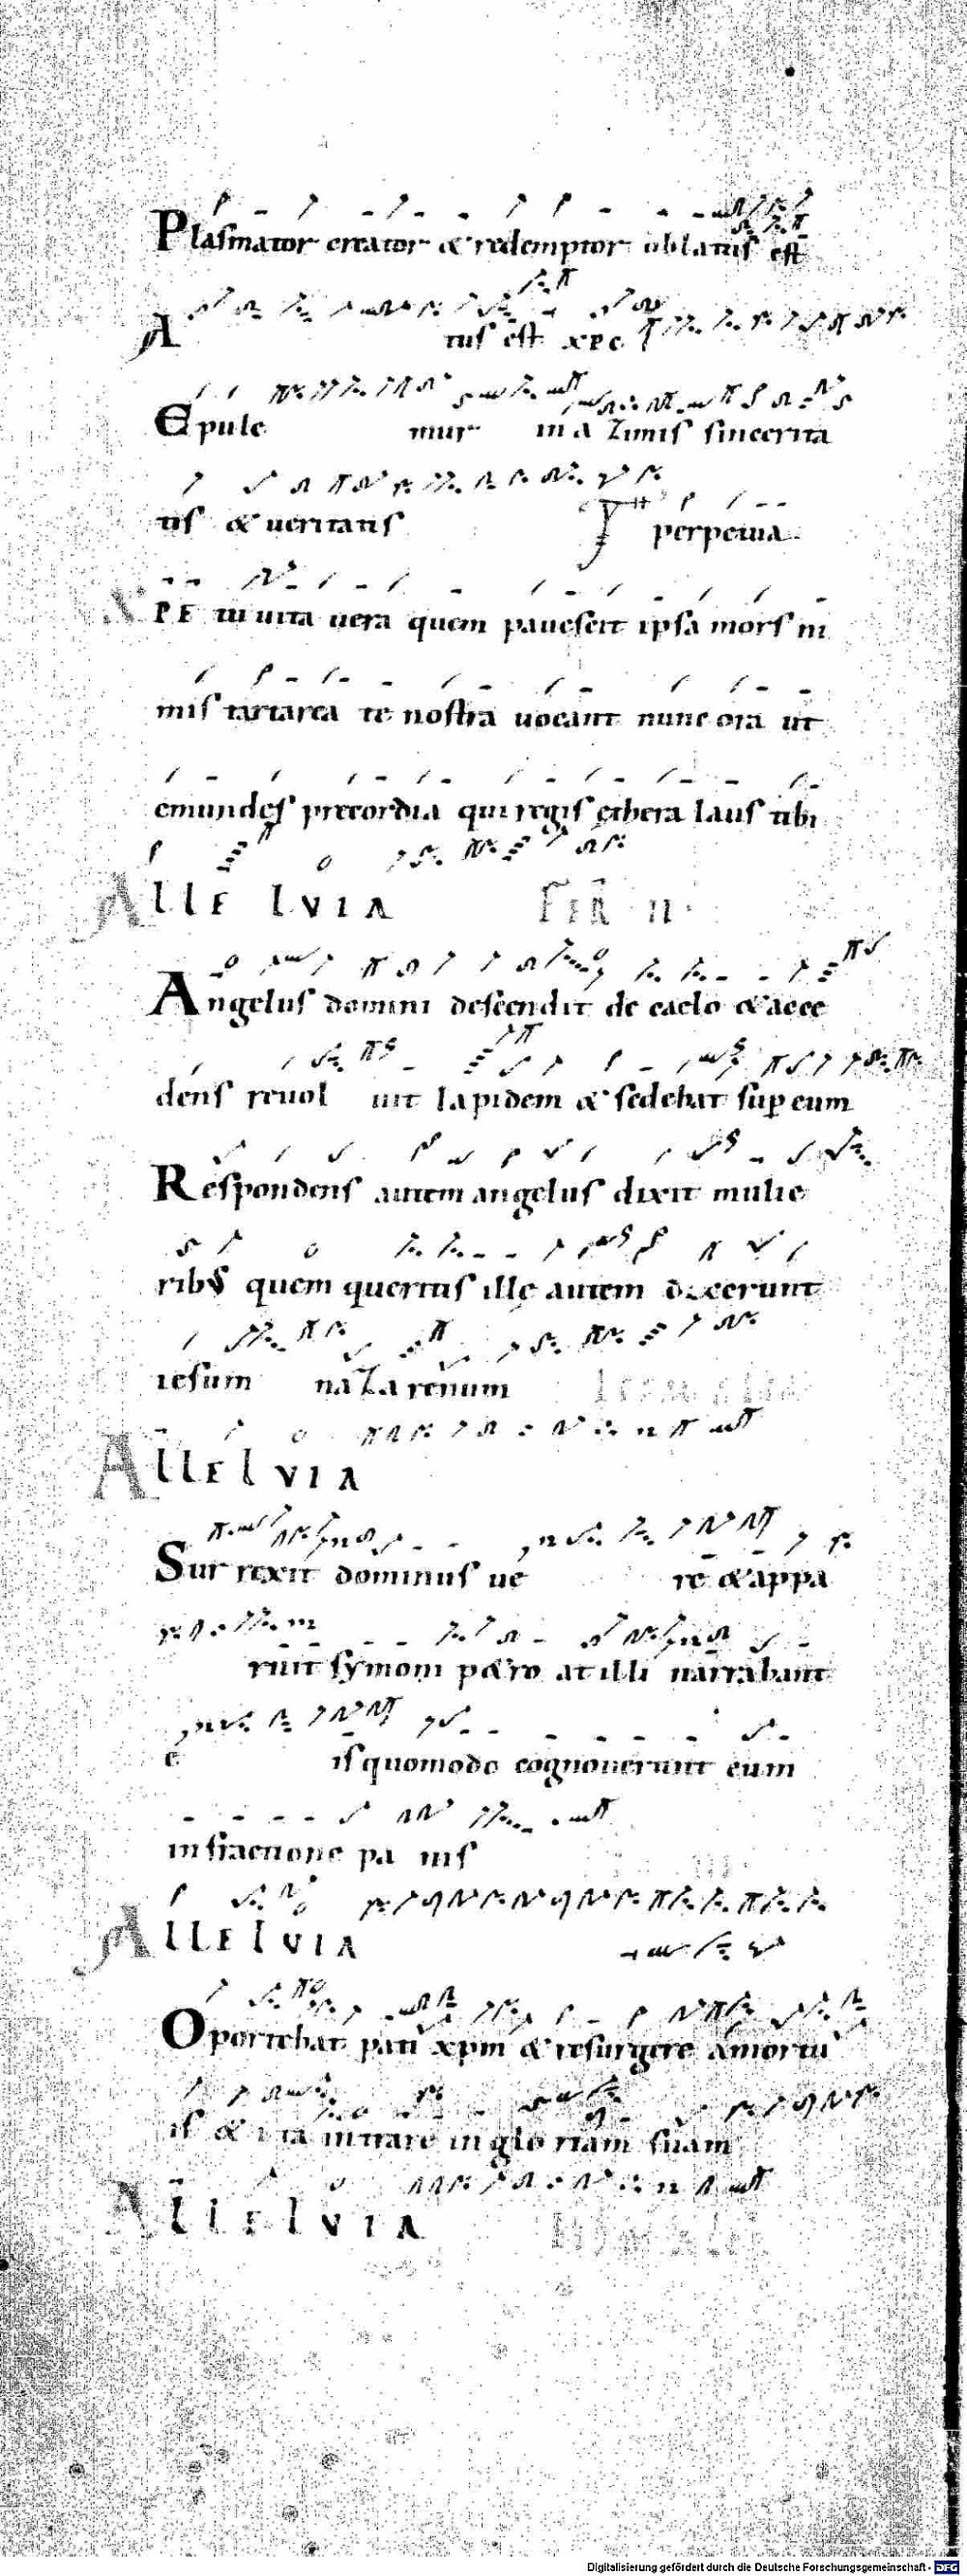 Plasmator creator & redemptor oblatus est
A tus est xpc
Epule mur in azimis sincerita
tis & ueritatis perpetua
XPE tu uita uera quem pauescit ipsa mors ni
mis tartarea te nostra uocant nunc ora ut
emundes precordia qui regis ęthera laus tibi
ALLELVIA
Angelus domini descendit de caelo & acce
dens reuol uit lapidem & sedebat sup eum
Respondens autem angelus dixit mulie
ribus quem queritis ille autem dixerunt
iesum nazarenum
ALLELVIA
Surrexit dominus ue re & appa
ruit symoni petro at illi narrabant
e is quomodo cognouerunt eum
in fractione pa nis
ALLELVIA
Oportebat pati xpm & resurgere a mortu
is & ita intrare in gloriam suam
ALLELVIA
Digitalisierung gefördert durch die Deutsche Forschungsgemeinschaft - DFG